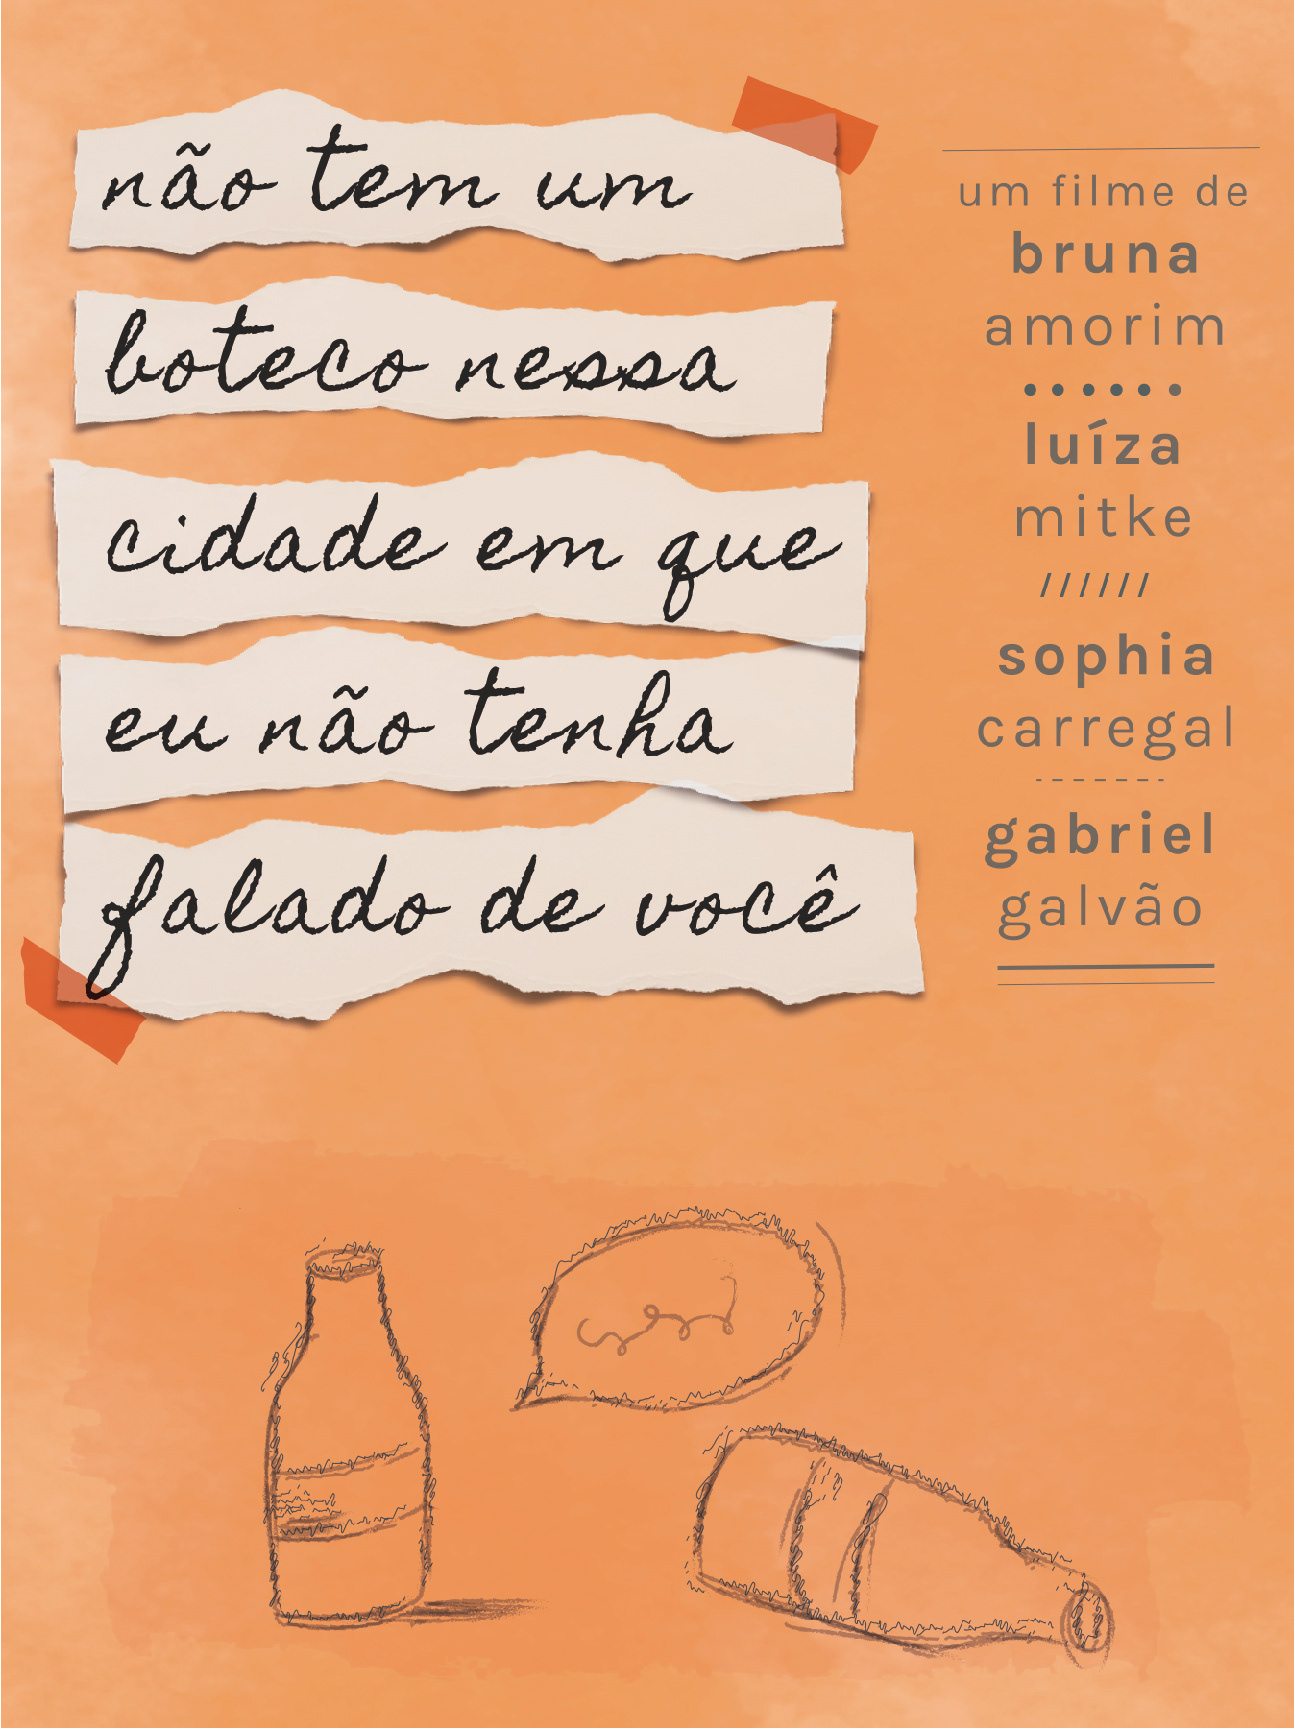 não tem um
boteco nessa
cidade em que
eu não tenha
falado de você
um filme de
bruna
amorim
luíza
mitke
//////
sophia
carregal
gabriel
galvão